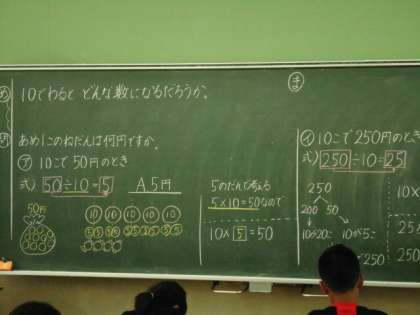 め 10でわると どんな数になるだろうか。
あめ1このねだんは何円ですか。
ア 10こで50円のとき
式) 50÷10=5 A.5円
50円
10 10 10 10 10
5のだんで考える
5×10=50なので
10×5=50
ま
イ 10こで250円のとき
式) 250÷10=25
250
200 50
10が20こ 10が5こ
250
10×
25
250